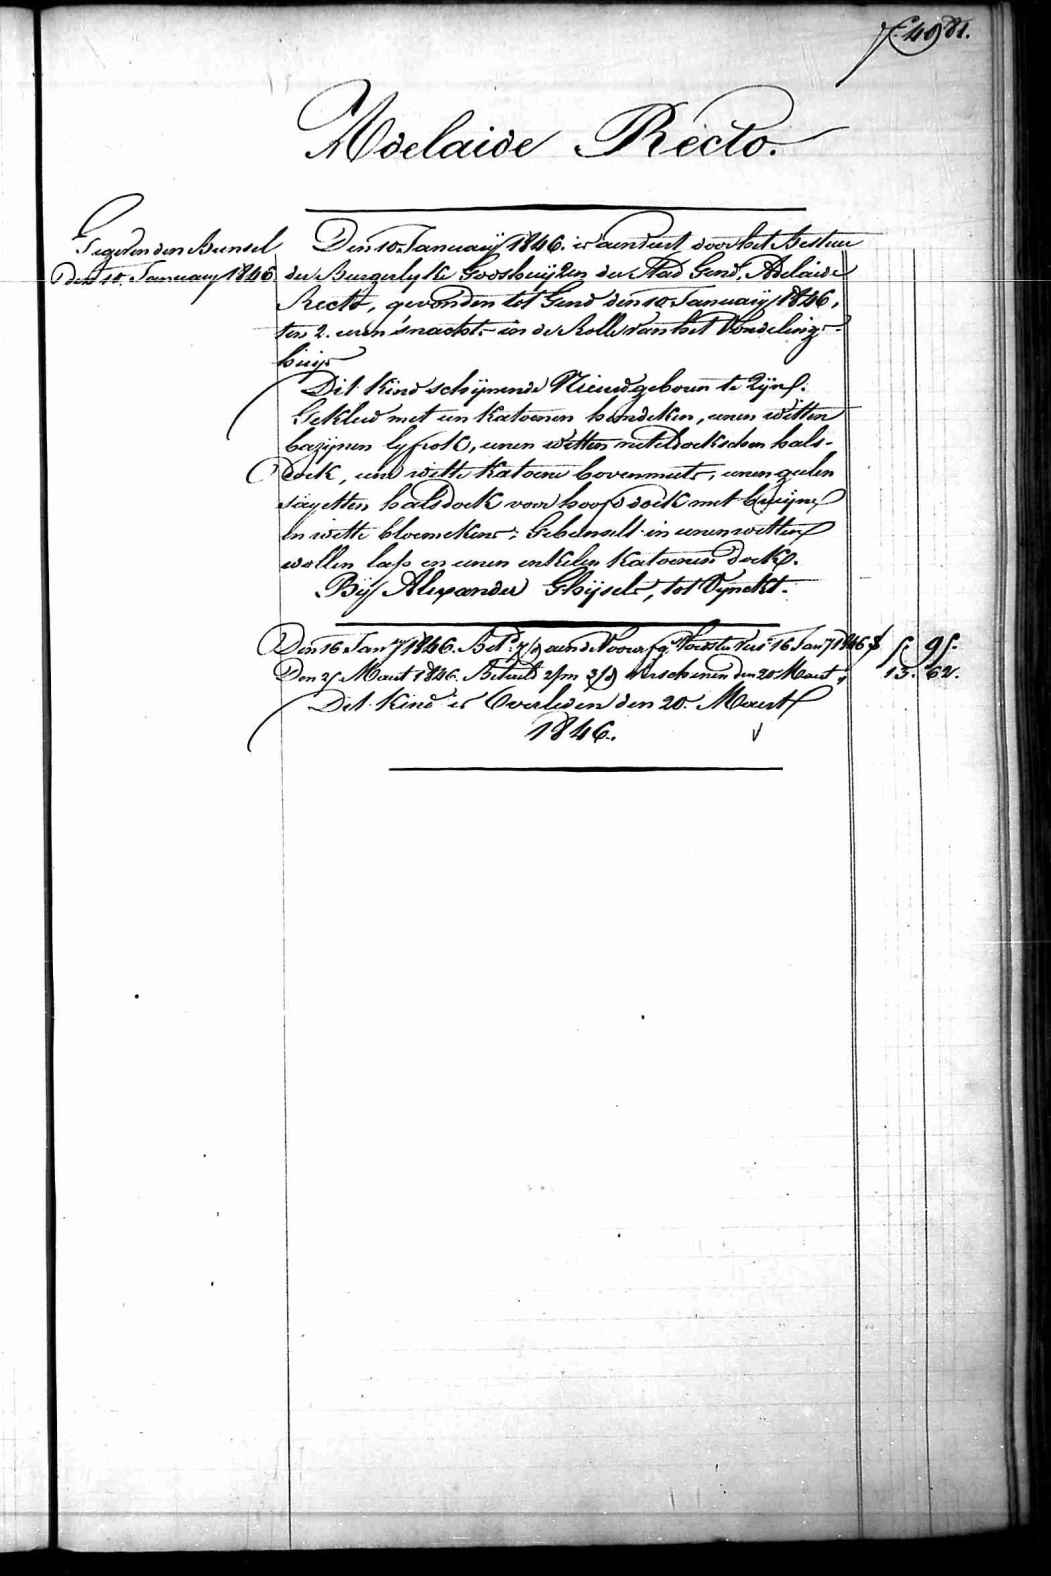 f. 49 81.
Adelaide Recto.
Gegeven den Bunsel
den 10. January 1846.
Den 10 Januarÿ 1846. is aenveert door het Bestier
der Burgerlyke Godshuÿzen der Stad Gend, Adelaide
Recto, gevonden tot Gend den 10 Januarÿ 1846,
ten 2. uren 'snachts in de Rolle van het Vondeling-
huÿs
Dit Kind schÿnende Nieuwgeboren te Zÿn.
Gekleed met een Katoenen hemdeken, eenen witten
bazÿnen lyfrok, eenen witten neteldoekschen hals-
doek, eene witte Katoene bovenmuts, eenen geelen
sayetten halsdoek voor hoofddoek met bruÿne
en witte bloemekens; Gebunselt in eenen witten
wollen lap en eenen enkelen Katoenen doek.
Bÿ Alexander Ghÿsels, tot Vynckt.
Den 16 Jany 1846. Bet. aen de Voorsz. Voedster tot 16 Jany 1846 5. 95.
Den 25 Maert 1846. Betaeld 2/m verschenen den 20 Maert 13. 62.
Dit Kind is Overleden den 20. Maert
1846.